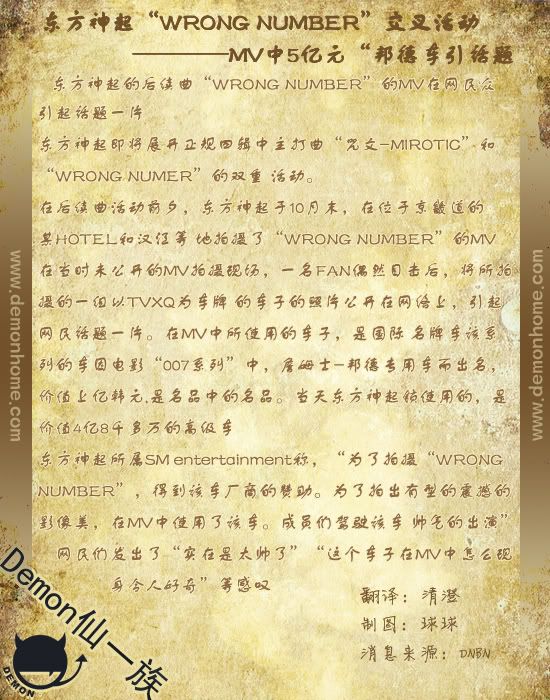 东方神起“WRONG NUMBER”交叉活动
————MV中5亿元“邦德车引话题
东方神起的后续曲“WRONG NUMBER”的MV在网民众
引起话题一阵
东方神起即将展开正规四辑中主打曲“咒文-MIROTIC”和
“WRONG NUMER”的双重 活动。
在后续曲活动前夕，东方神起于10月末，在位于京畿道的
某HOTEL和汉江等 地拍摄了“WRONG NUMBER”的MV
在当时未公开的MV拍摄现场，一名FAN偶然目击后，将所拍
摄的一组以TVXQ为车牌 的车子的照片公开在网络上，引起
网民话题一阵。在MV中所使用的车子，是国际 名牌车该系
列的车因电影“007系列”中，詹姆士-邦德专用车而出名，
价值上亿韩元,是名品中的名品。当天东方神起桢使用的，是
价值4亿8千多万的高级车
东方神起所属SM entertainment称，“为了拍摄“WRONG
NUMBER”，得到该车厂商的赞助。为了拍出有型的震撼的
影像美，在MV中使用了该车。成员们驾驶该车 帅气的出演”
网民们发出了“实在是太帅了”“这个车子在MV中怎么现
身令人好奇”等感叹
翻译：清澄
制图：球球
消息来源：DNBN
www.demonhome.com
www.demonhome.com
Demon仙一族
DEMON